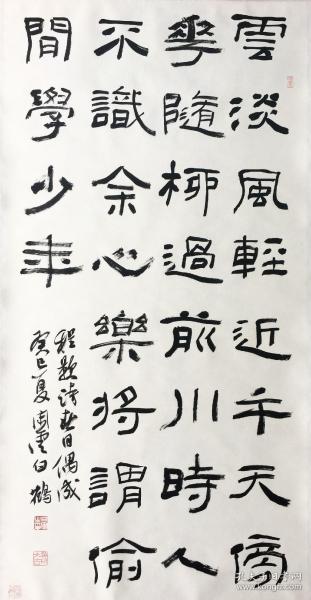 雲淡風輕近午天傍
華隨柳過前川時人
不識余心樂將謂偷
間學少年
程顥詩春日偶成
癸巳夏